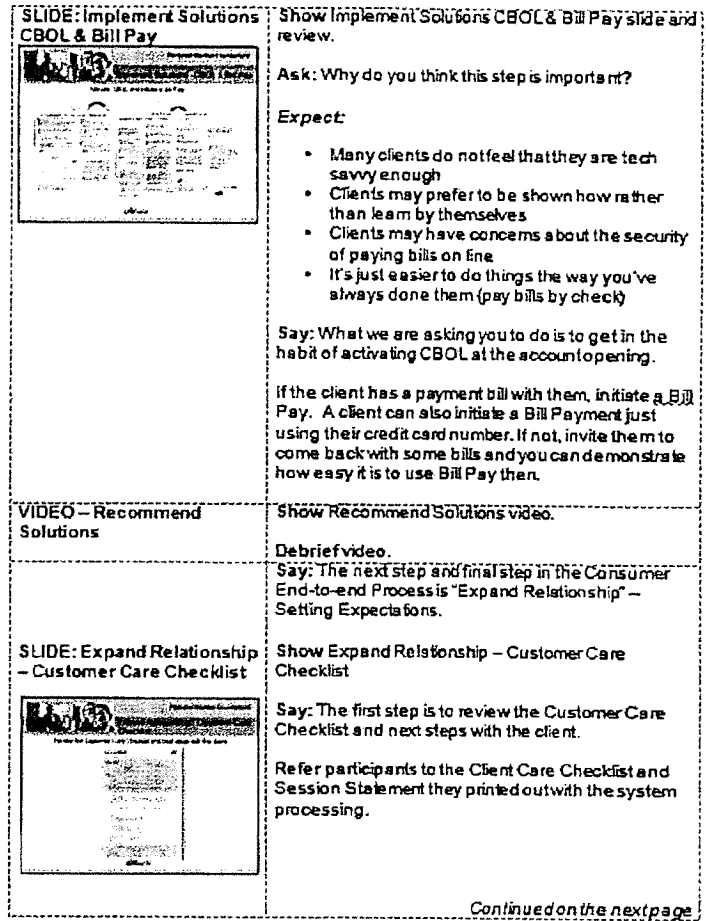 SLIDE: Implement Solutions
CBOL & Bill Pay
Show Implement Solutions CBOL & Bill Pay slide and
review.
Ask: Why do you think this step is important?
Expect:
• Many clients do not feel that they are tech
savvy enough
• Clients may prefer to be shown how rather
than learn by themselves
• Clients may have concerns about the security
of paying bills on line
• It's just easier to do things the way you've
always done them (pay bills by check)
Say: What we are asking you to do is to get in the
habit of activating CBOL at the account opening.
If the client has a payment bill with them, initiate a Bill
Pay. A client can also initiate a Bill Payment just
using their credit card number. If not, invite them to
come back with some bills and you can demonstrate
how easy it is to use Bill Pay then.
VIDEO – Recommend
Solutions
Show Recommend Solutions video.
Debrief video.
Say: The next step and final step in the Consumer
End-to-end Process is "Expand Relationship" –
Setting Expectations.
SLIDE: Expand Relationship
– Customer Care Checklist
Show Expand Relationship – Customer Care
Checklist
Say: The first step is to review the Customer Care
Checklist and next steps with the client.
Refer participants to the Client Care Checklist and
Session Statement they printed out with the system
processing.
Continued on the next page